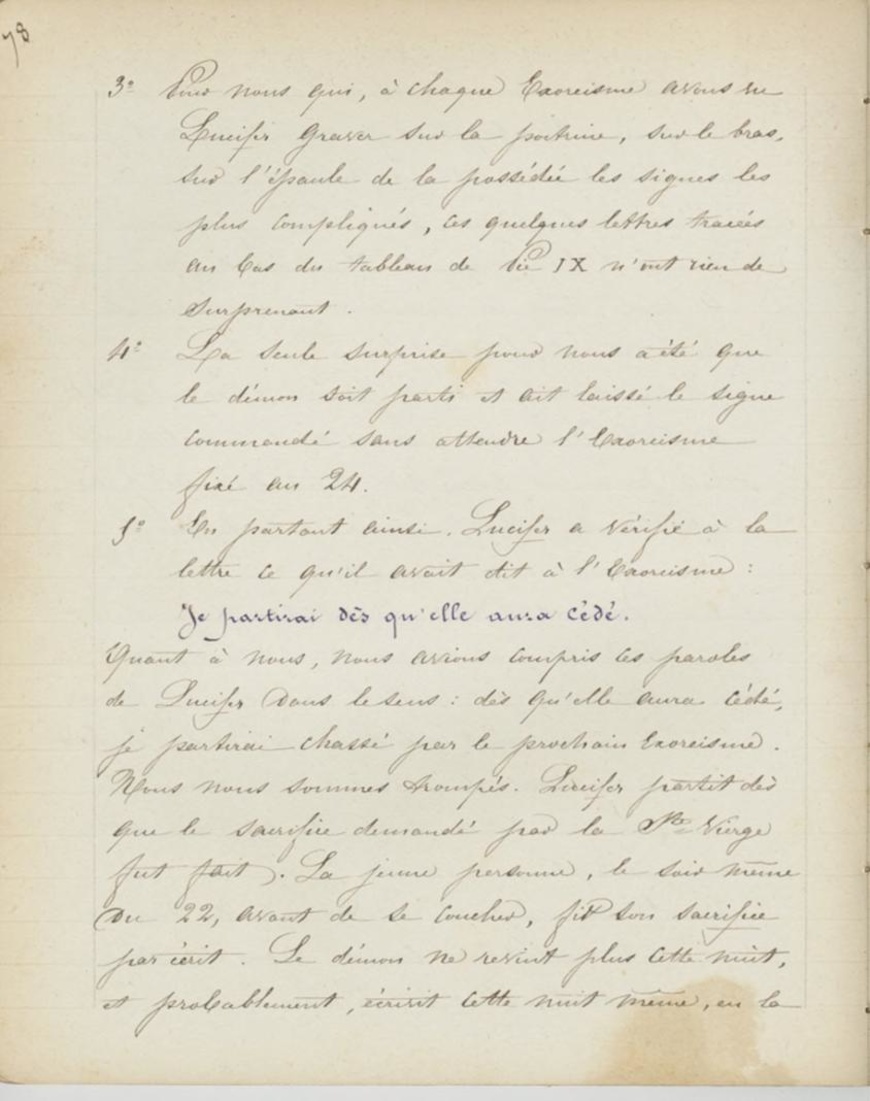 78
3º Pour nous qui, à chaque Exorcisme avons vu
Lucifer graver sur la poitrine, sur le bras,
sur l'épaule de la possédée les signes les
plus compliqués, ces quelques lettres tracées
au bas du tableau de Pie IX n'ont rien de
surprenant.
4º La seule surprise pour nous a été que
le démon soit parti et ait laissé le signe
commandé sans attendre l'Exorcisme
fixé au 24.
5º En partant ainsi. Lucifer a vérifié à la
lettre ce qu'il avait dit à l'Exorcisme :
Je partirai dès qu'elle aura cédé.
Quant à nous, nous avions compris ces paroles
de Lucifer dans le sens : dès qu'elle aura cédé,
je partirai chassé par le prochain Exorcisme.
Nous nous sommes trompés. Lucifer partit dès
que le sacrifice demandé par la Ste Vierge
fut fait. La jeune personne, le soir même
du 22, avant de se coucher, fit son sacrifice
par écrit. Le démon ne revint plus cette nuit,
et probablement, écrivit cette nuit même, en la